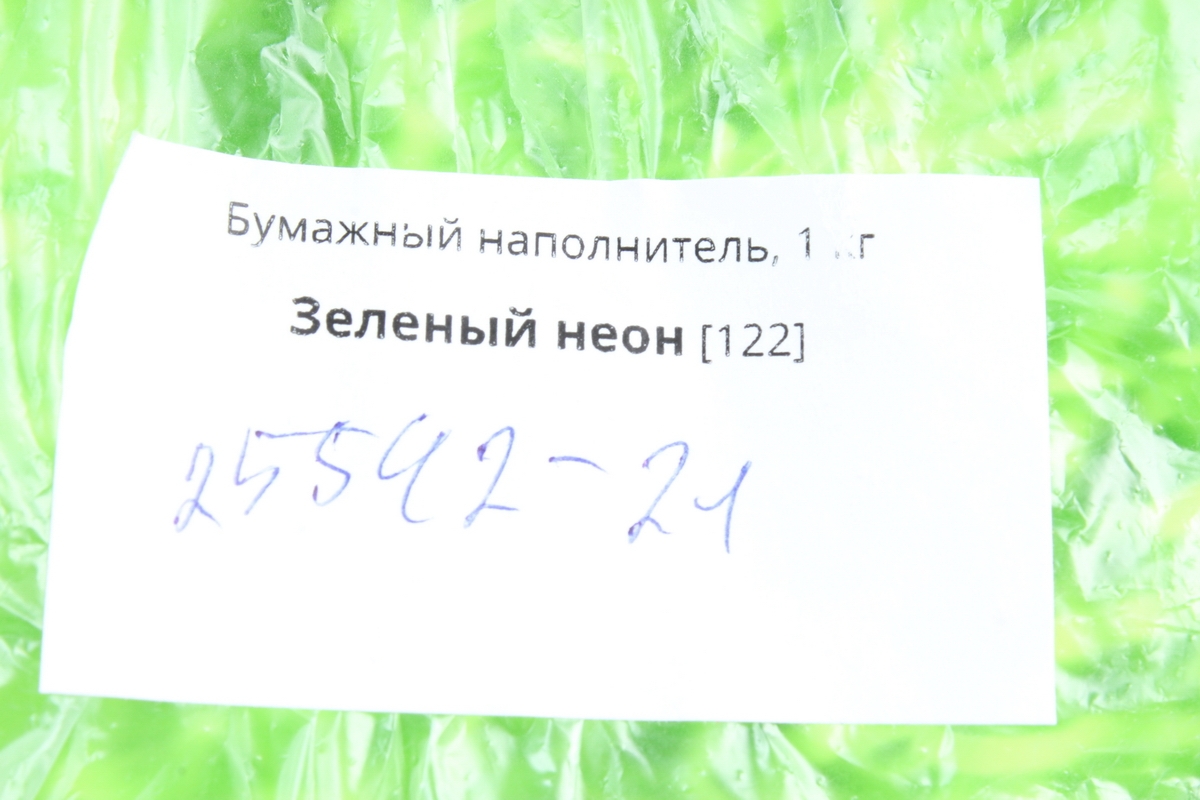 Бумажный наполнитель, 1 кг
Зеленый неон [122]
25592-21